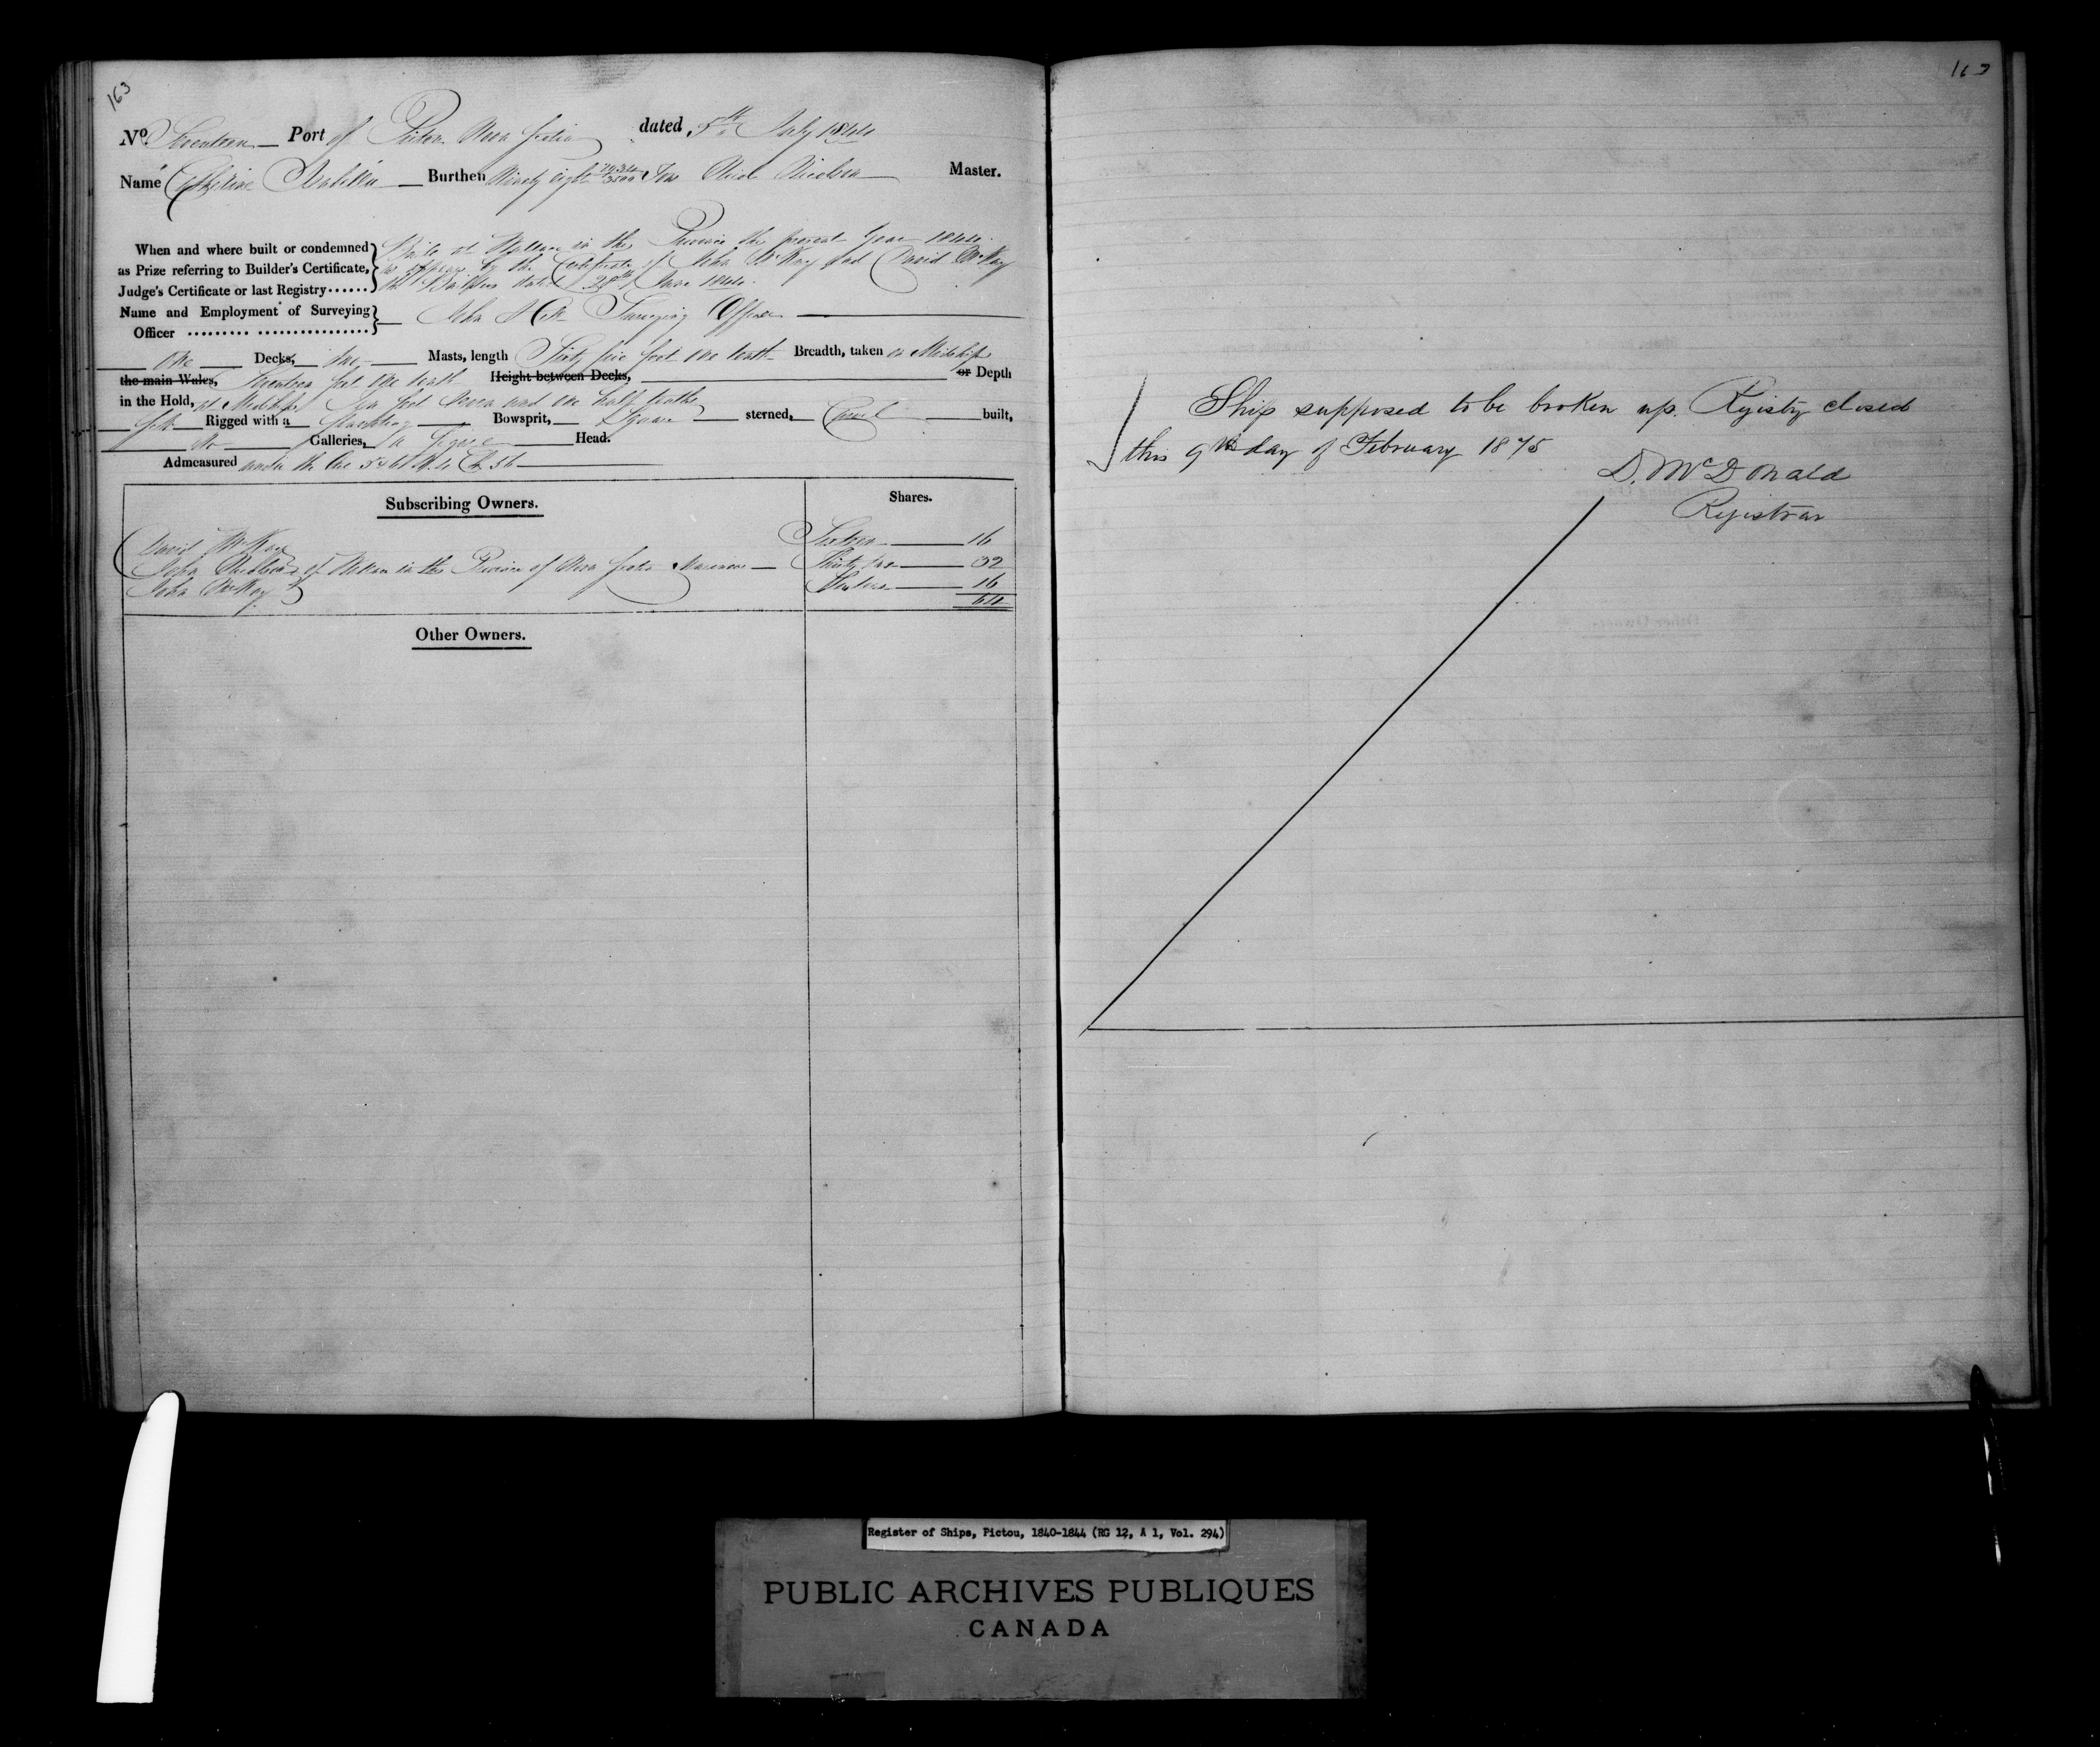 163
No Seventeen Port of Pictou Nova Scotia dated 5th July 1844
Name Catherine Isabella Burthen Ninety eight Tons Master.
When and where built or condemned
as Prize referring to Builder's Certificate,
Judge's Certificate or last Registry......
Built at Wallace in the Province the present Year 1844
as appears by the Certificate of John McKay and David McKay
the Builders dated 28th June 1844.
Name and Employment of Surveying
Officer ......... ................
John Surveying Officer
One Decks, two Masts, length Sixty five feet one tenth Breadth, taken at Midships
the main Wales, Seventeen feet one tenth Height between Decks, or Depth
in the Hold, at Midships feet Seven and one half tenths
Rigged with a standing Bowsprit, Square sterned, Carvel built,
No Galleries, a figure Head.
Admeasured under the Act 5 & 6 W. 4 Ch. 56
Subscribing Owners. Shares.
David McKay Sixteen 16
John of Wallace in the Province of Nova Scotia Mariners Thirty two 32
John McKay Sixteen 16
64
Other Owners.
Ship supposed to be broken up. Registry closed
this 9th day of February 1875
D. McDonald
Registrar
Register of Ships, Pictou, 1840-1844 (RG 12, A 1, Vol. 294)
PUBLIC ARCHIVES PUBLIQUES
CANADA